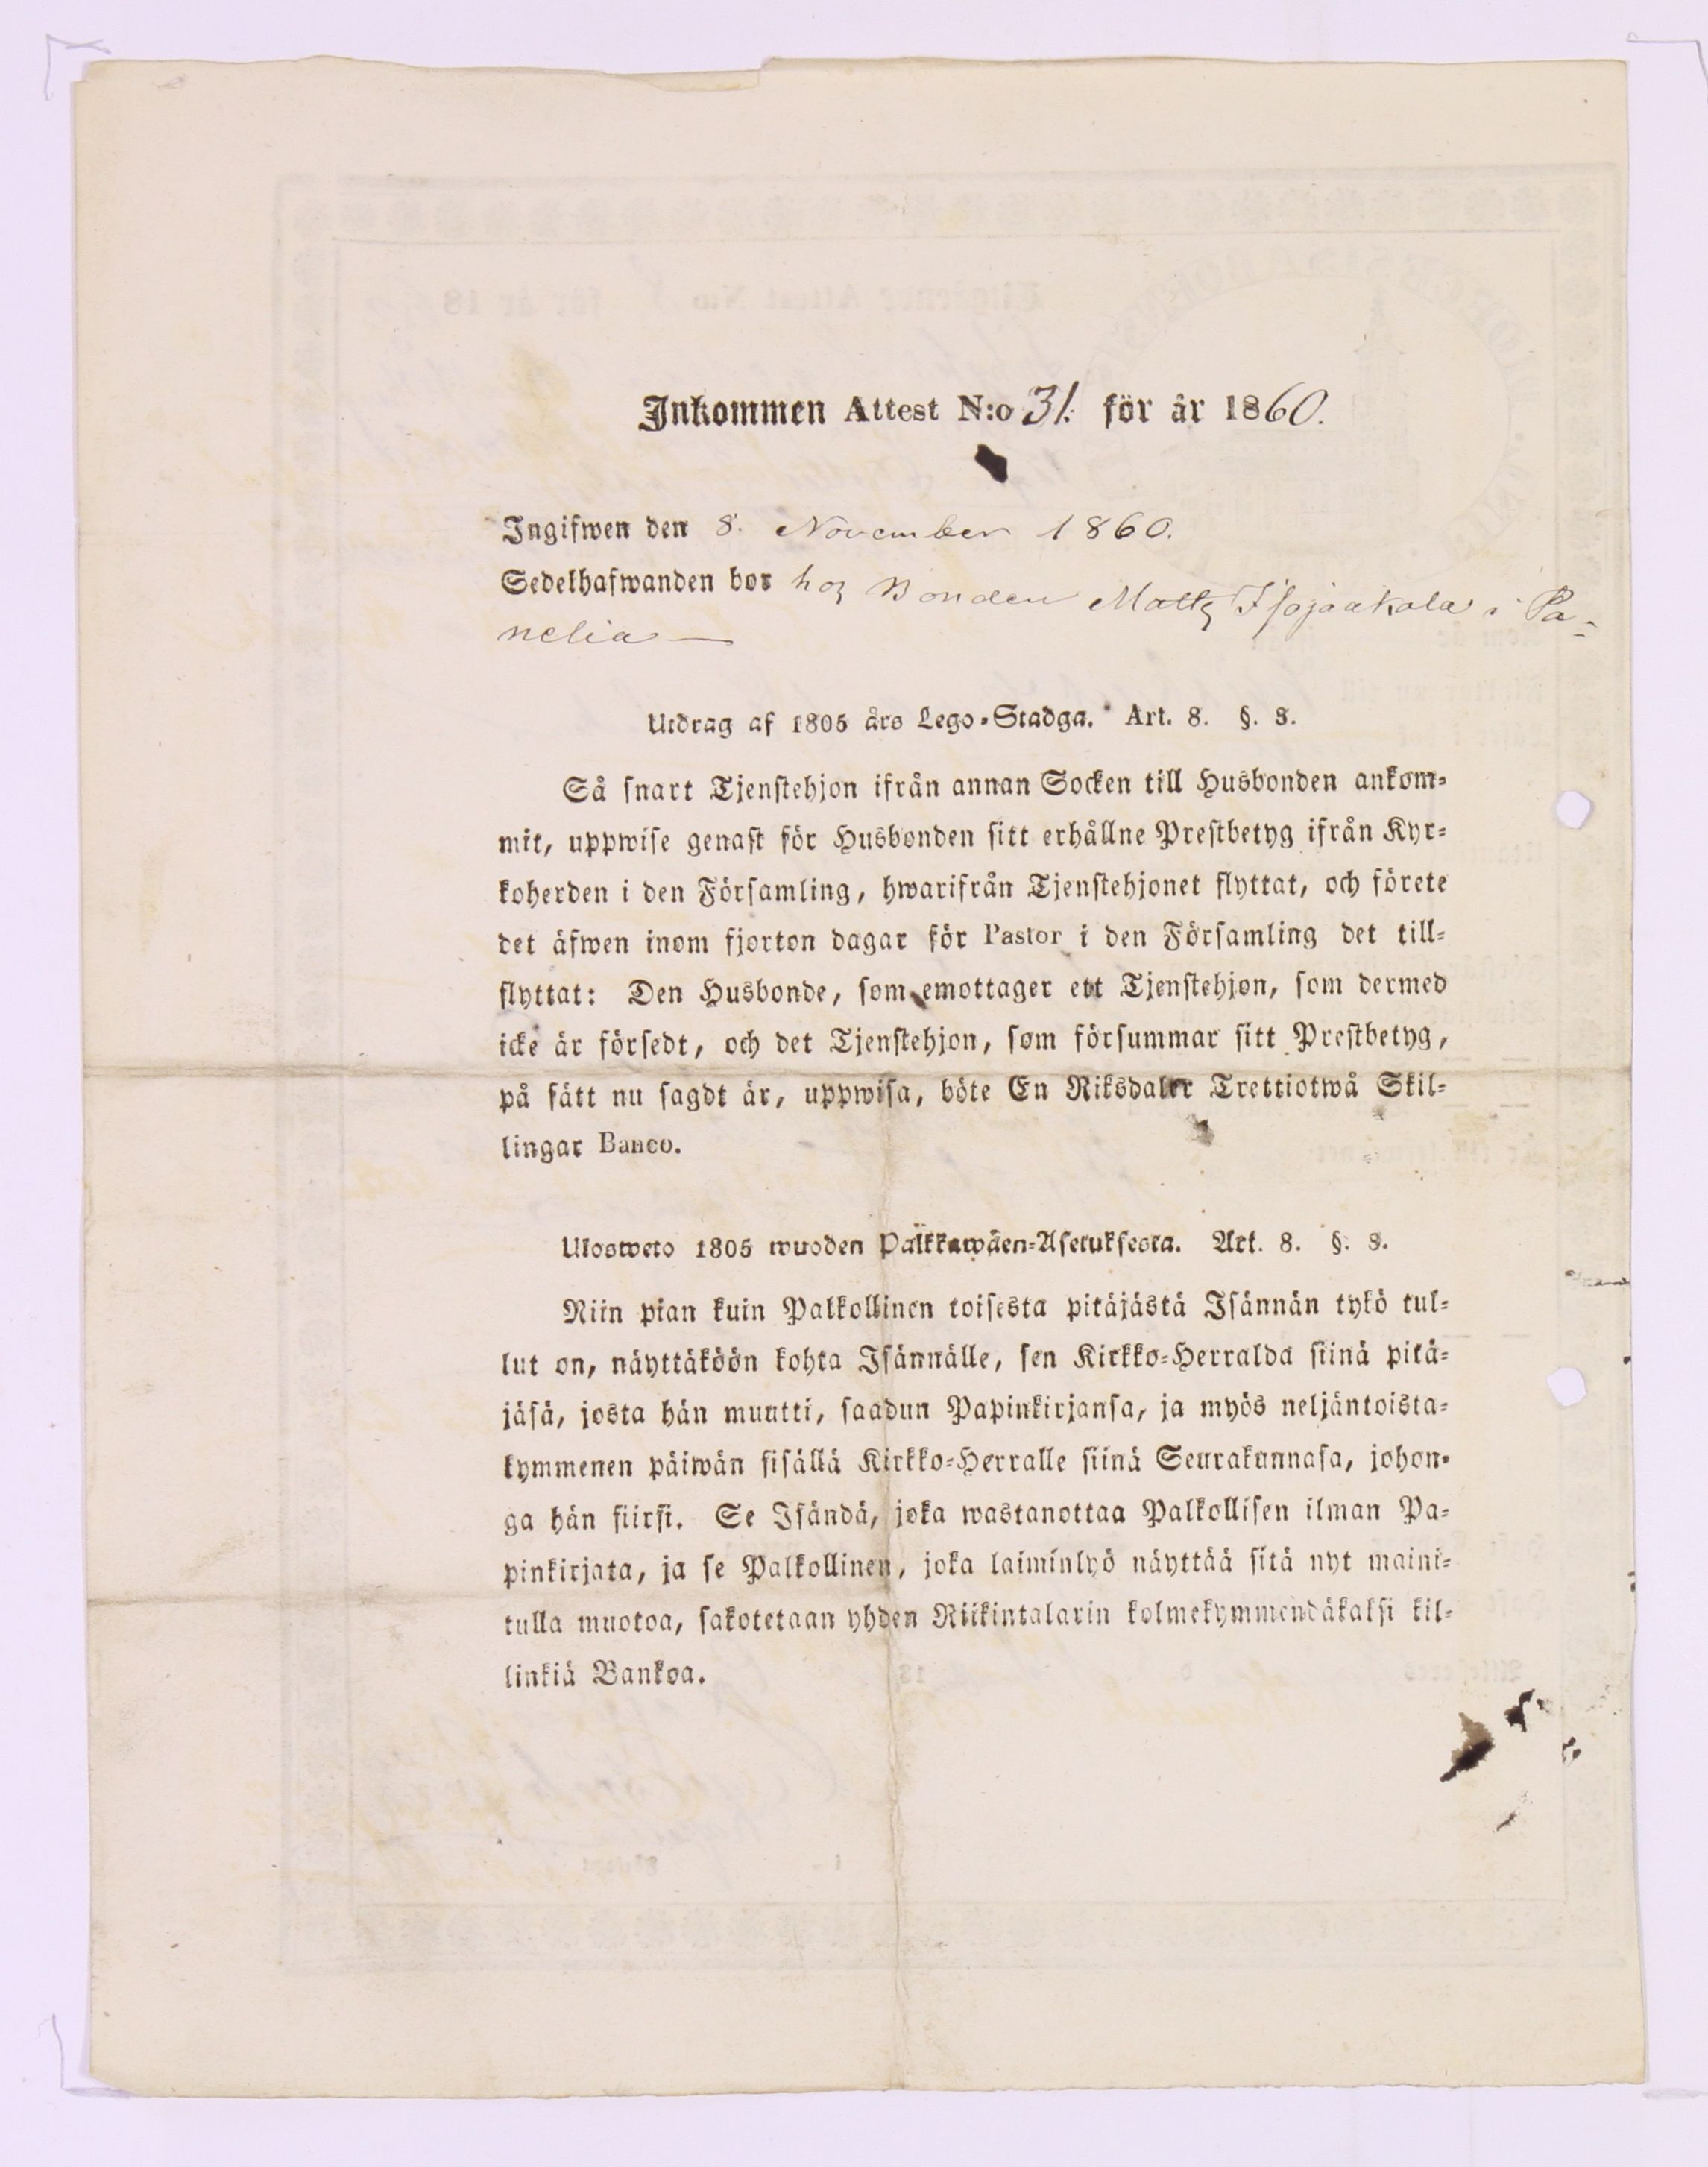 Inkommen Attest N:o 31. för år 1860.
Ingifwen den 8. November 1860.
Sedelhafwanden bor hos Bonden Matts Isojaakola i Pa-
nelia —
Utdrag af 1805 års Lego-Stadga. Art. 8. §. 8.
Så snart Tjenstehjon ifrån annan Socken till Husbonden ankom-
mit, uppwise genast för Husbonden sitt erhållne Prestbetyg ifrån Kyr-
koherden i den Församling, hwarifrån Tjenstehjonet flyttat, och förete
det äfwen inom fjorton dagar för Pastor i den Församling det till-
flyttat: Den Husbonde, som emottager ett Tjenstehjon, som dermed
icke är försedt, och det Tjenstehjon, som försummar sitt Prestbetyg,
på sätt nu sagdt är, uppwisa, böte En Riksdaler Trettiotwå Skil-
lingar Banco.
Ulosweto 1805 wuoden Palkkawäen-Asetuksesta. Art. 8. §. 8.
Niin pian kuin Palkollinen toisesta pitäjästä Isännän tykö tul-
lut on, näyttäköön kohta Isännälle, sen Kirkko-Herralda siinä pitä-
jäsä, josta hän muutti, saadun Papinkirjansa, ja myös neljäntoista-
kymmenen päiwän sisällä Kirkko-Herralle siinä Seurakunnasa, johon-
ga hän siirsi. Se Isändä, joka wastanottaa Palkollisen ilman Pa-
pinkirjata, ja se Palkollinen, joka laiminlyö näyttää sitä nyt maini-
tulla muotoa, sakotetaan yhden Riikintalarin kolmekymmendäkaksi kil-
linkiä Bankoa.